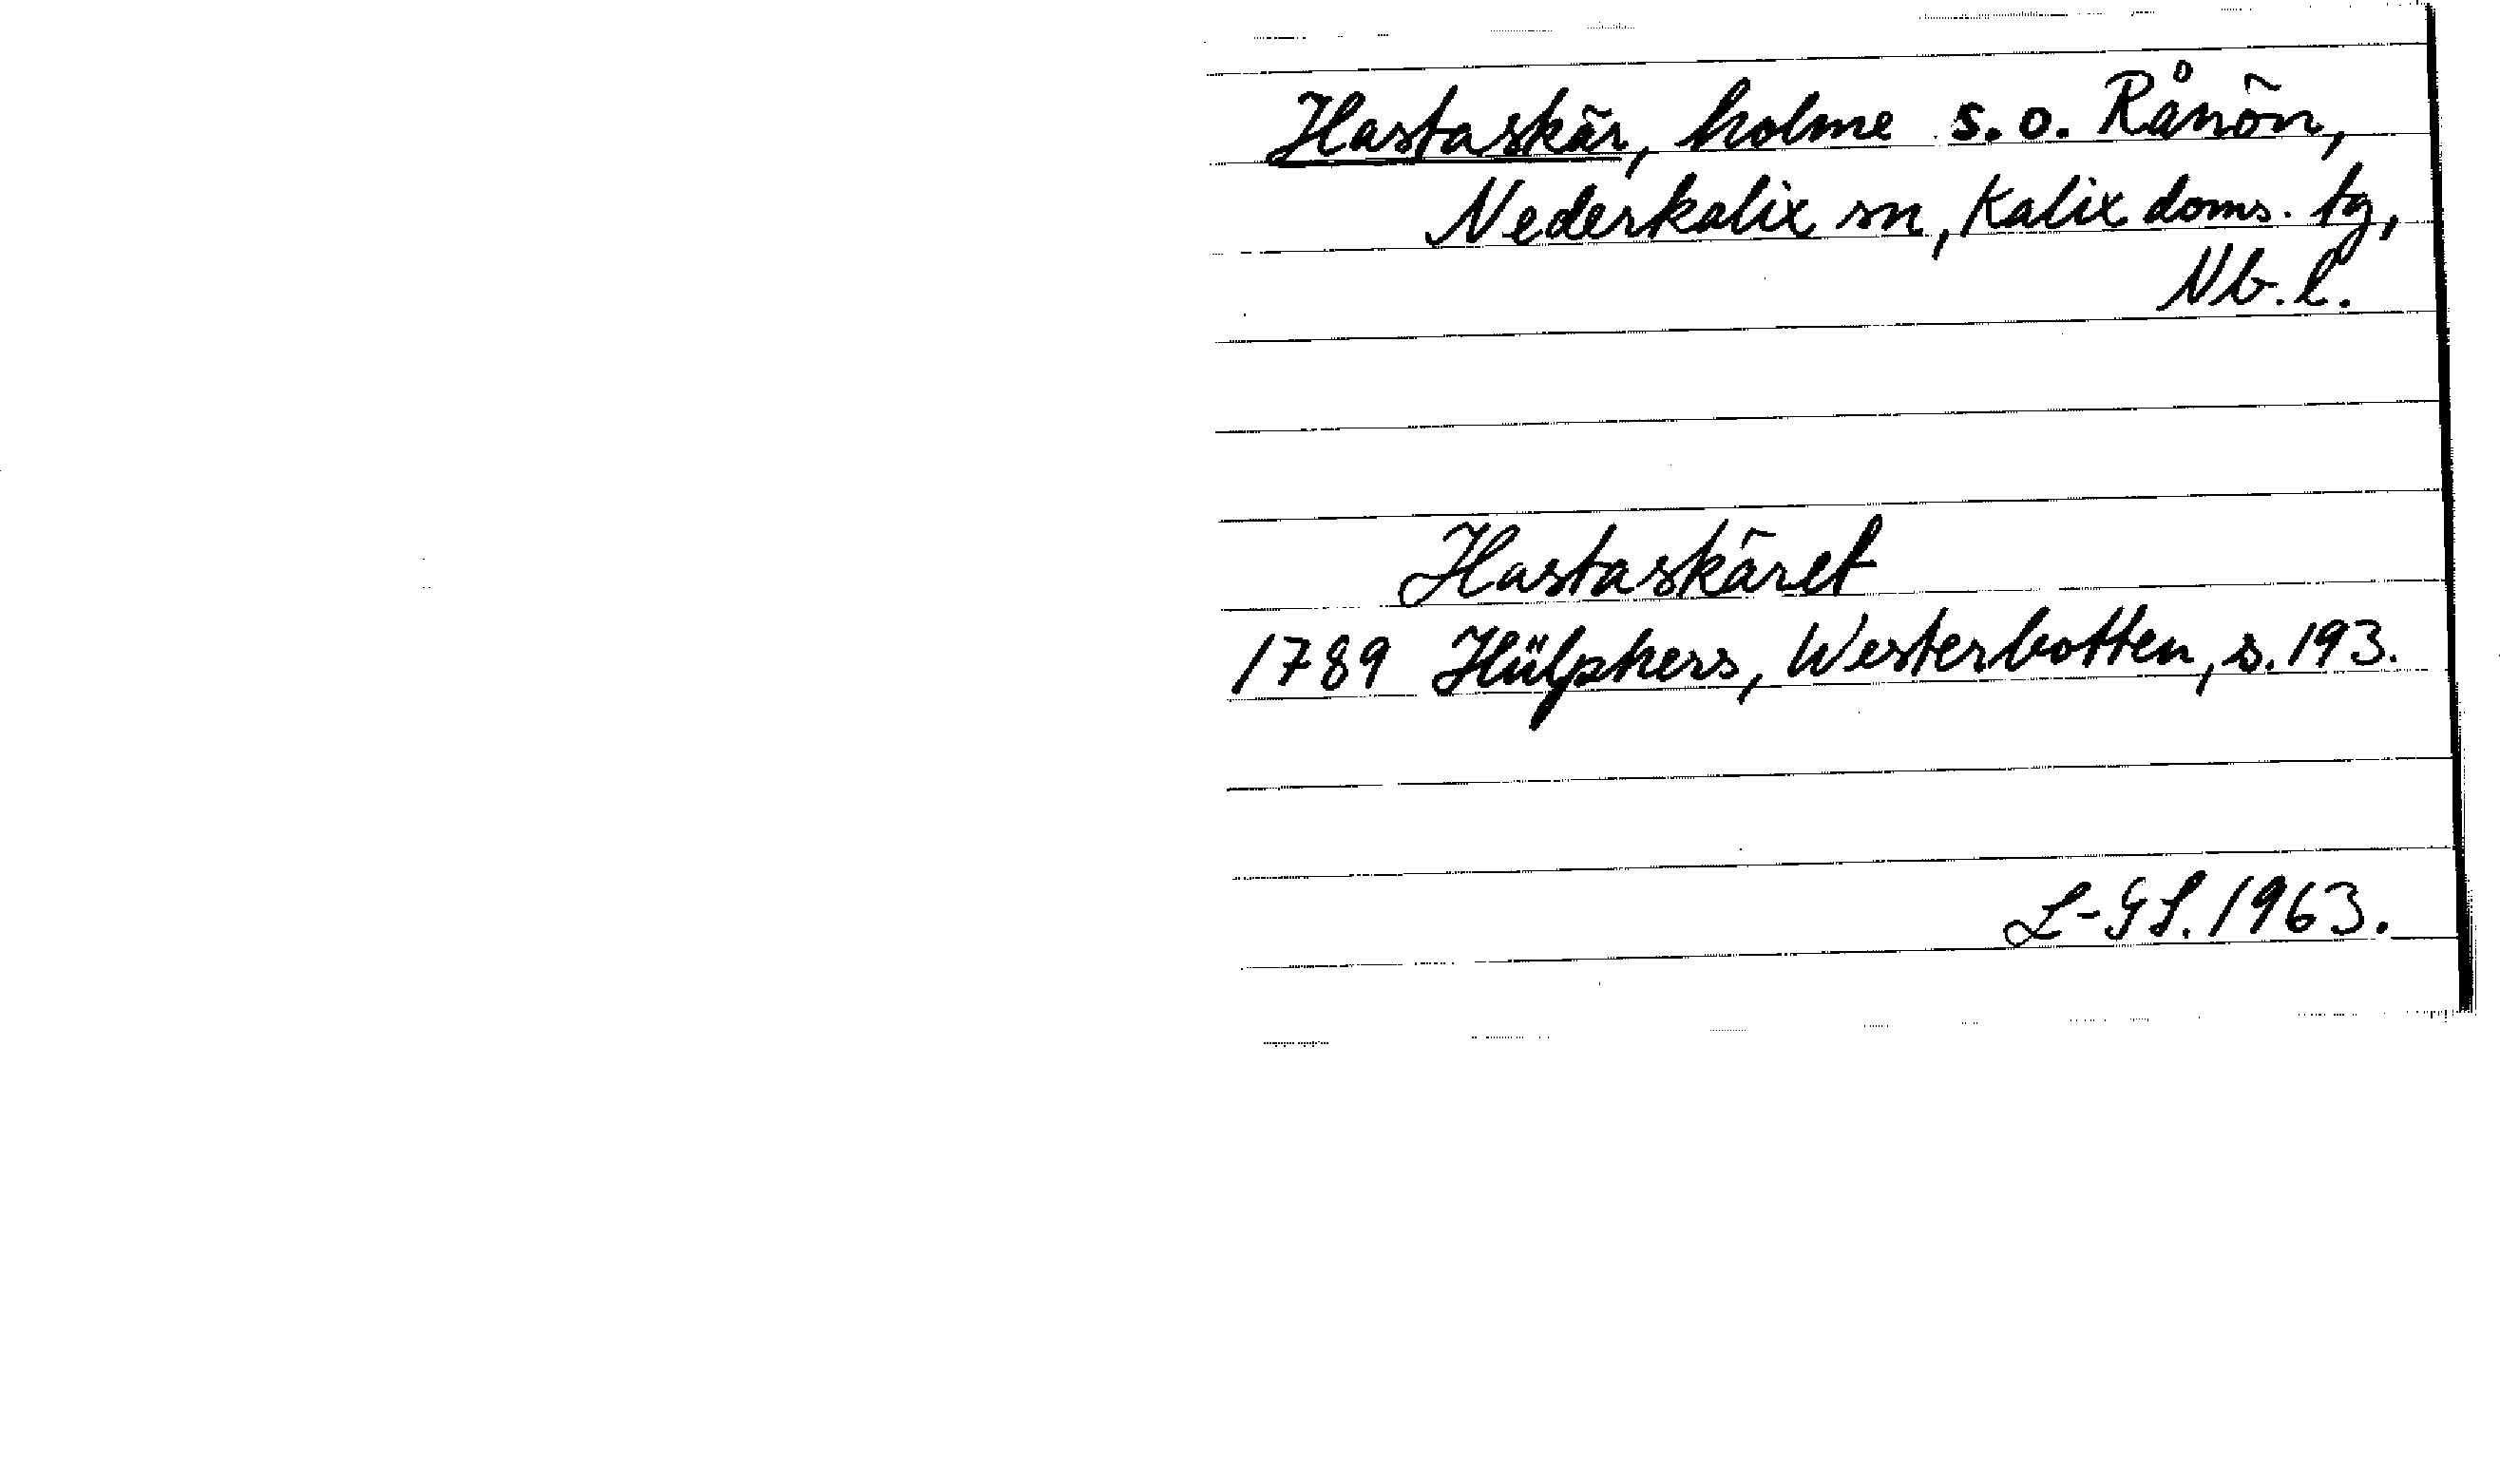 Hastaskär, holme s.o. Rånön,
Nederkalix sn, Kalix doms. tg,
Nb. l.
Hastaskäret
1789 Hülphers, Westerbotten, s. 193.
L-GL. 1963.